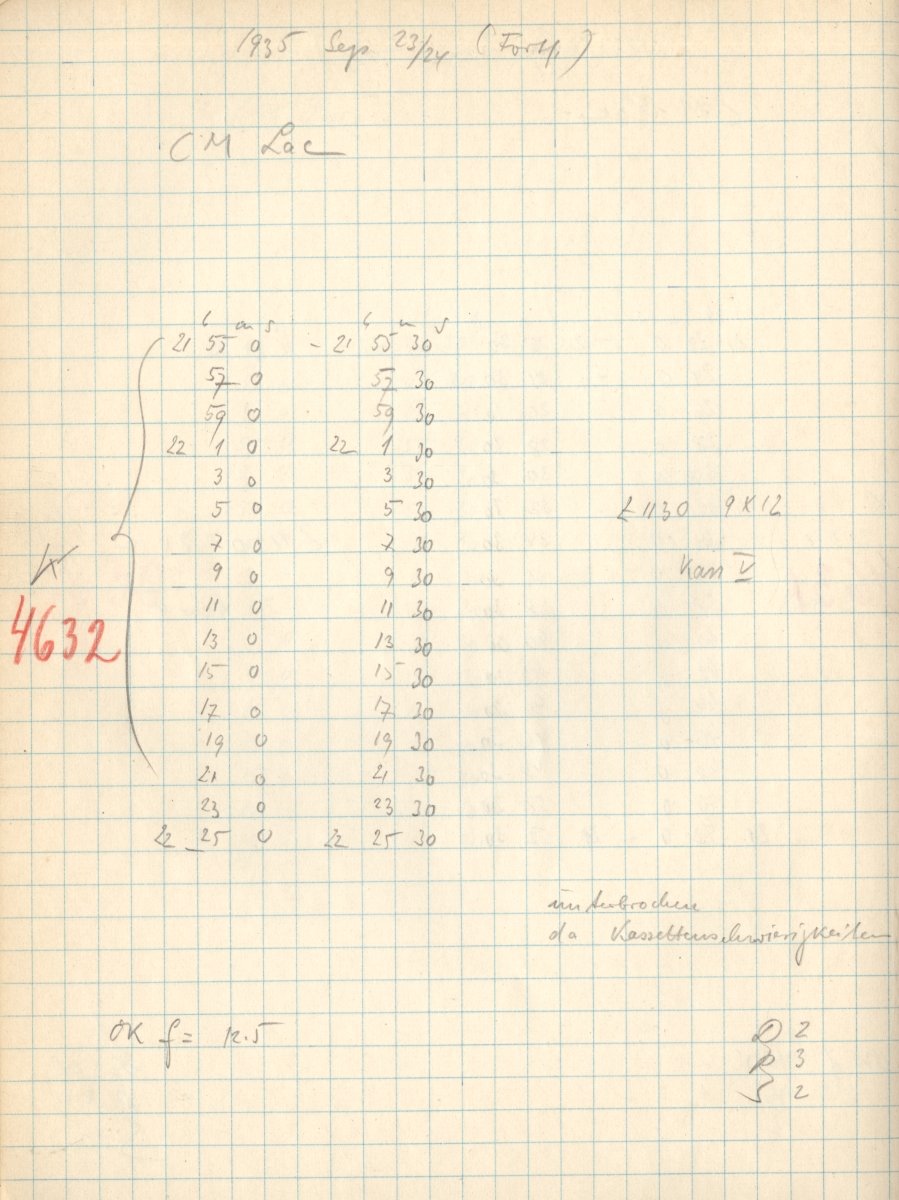 1935 Sep 23/24 (Forts.)
CM Lac
h m s h m s
21 55 0 - 21 55 30
57 0 57 30
59 0 59 30
22 1 0 22 1 30
3 0 3 30
5 0 5 30
£1130 9X12
7 0 7 30
Kass V
9 0 9 30
4632
11 0 11 30
13 0 13 30
15 0 15 30
17 0 17 30
19 0 19 30
21 0 21 30
23 0 23 30
22 25 0 22 25 30
unterbrochen
da Kassettenschwierigkeiten
OK f = 12.5
D 2
P 3
S 2